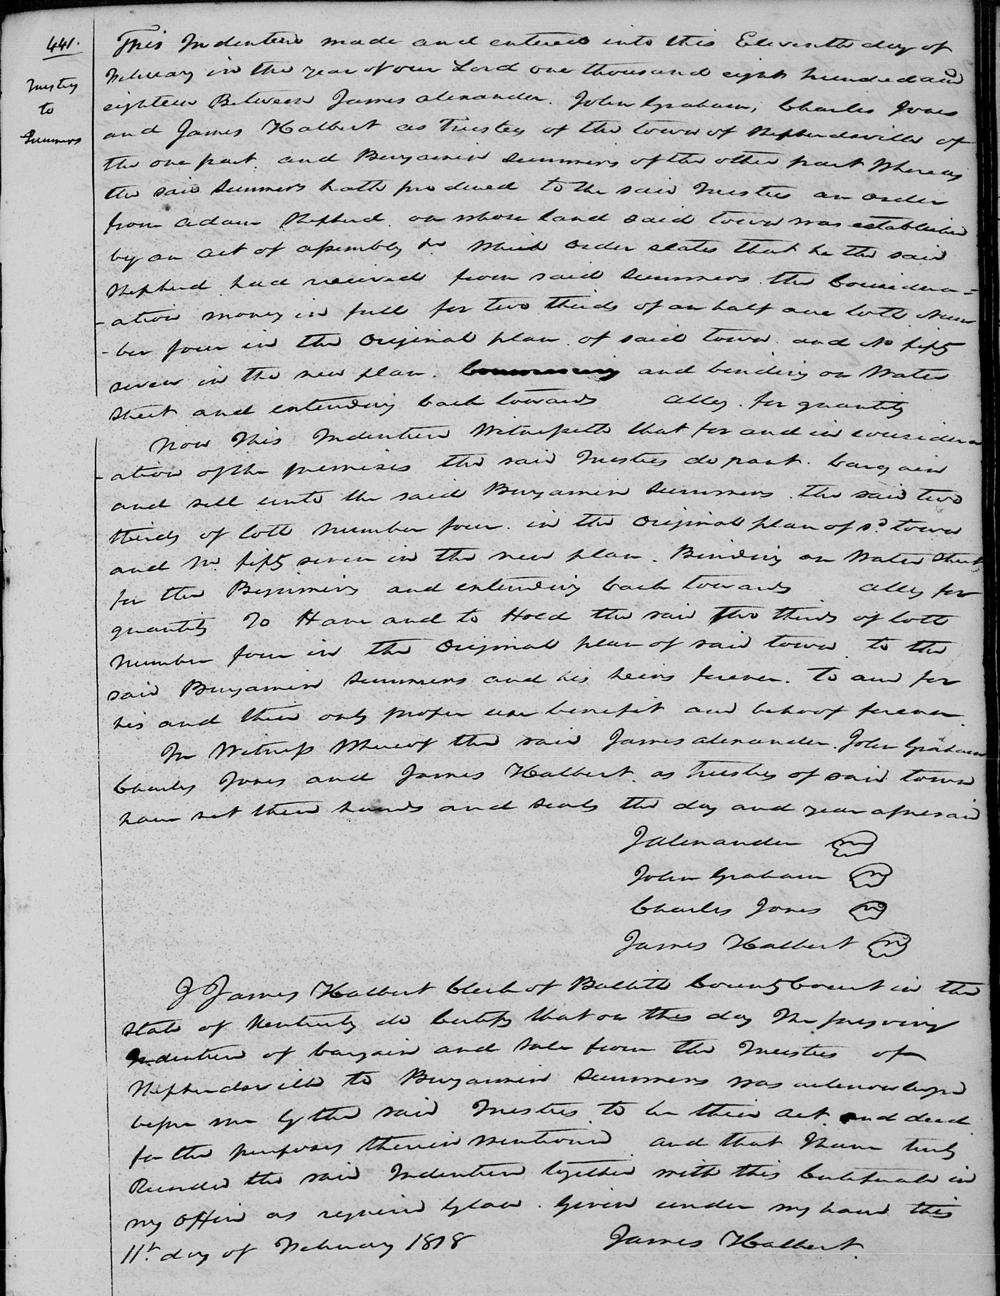 441.
Trustees
to
Summers
This Indenture made and entered into this Eleventh day of
February in the year of our Lord one thousand eight hundred and
eighteen Between James Alexander. John Graham, Charles Jones
and James Halbert as Trustees of the town of Shepherdsville of
the one part and Benjamin Summers of the other part Whereas
the said Summers hath produced to the said Trustees an order
from Adam Shepherd on whose land said town was established
by an act of assembly & Which order states that he the said
Shepherd had received from said Summers the Considera=
-ation money in full for two thirds of an half acre lott Num
-ber four in the Original plan of said town and No fifty
seven in the new plan. and binding on Water
Street and extending back towards alley for quantity
Now This Indenture Witnesseth that for and in considera
-ation of the premises the said Trustees do part. bargain
and sell unto the said Benjamin Summers the said two
thirds of lott number four in the Original plan of sd. town
and No. fifty seven in the new plan. Binding on Water Street
for the Beginning and extending back towards alley for
quantity To Have and to Hold the said two thirds of lott
number four in the Original plan of said town to the
said Benjamin Summers and his heirs forever. to and for
his and their only proper use benefit and behoof forever.
In Witness Whereof the said James Alexander. John Graham
Charles Jones and James Halbert as trustees of said town
have set their hands and seals the day and year aforesaid
J Alexander
John Graham
Charles Jones
James Halbert
I James Halbert Clerk of Bullitt County Court in the
state of Kentucky do Certify that on this day The foregoing
Indenture of bargain and sale from the Trustees of
Shepherdsville to Benjamin Summers was acknowledged
before me by the said Trustees to be their act and deed
for the purposes therein mentioned and that I have truly
Recorded the said Indenture together with this Certificate in
my office as required by law. Given under my hand this
11th day of February 1818 James Halbert.